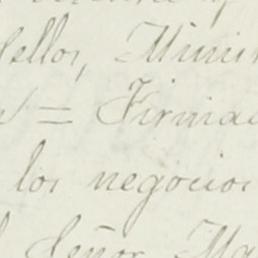 Sellos, Minis
= Firmad
los negocios
Señor Ma